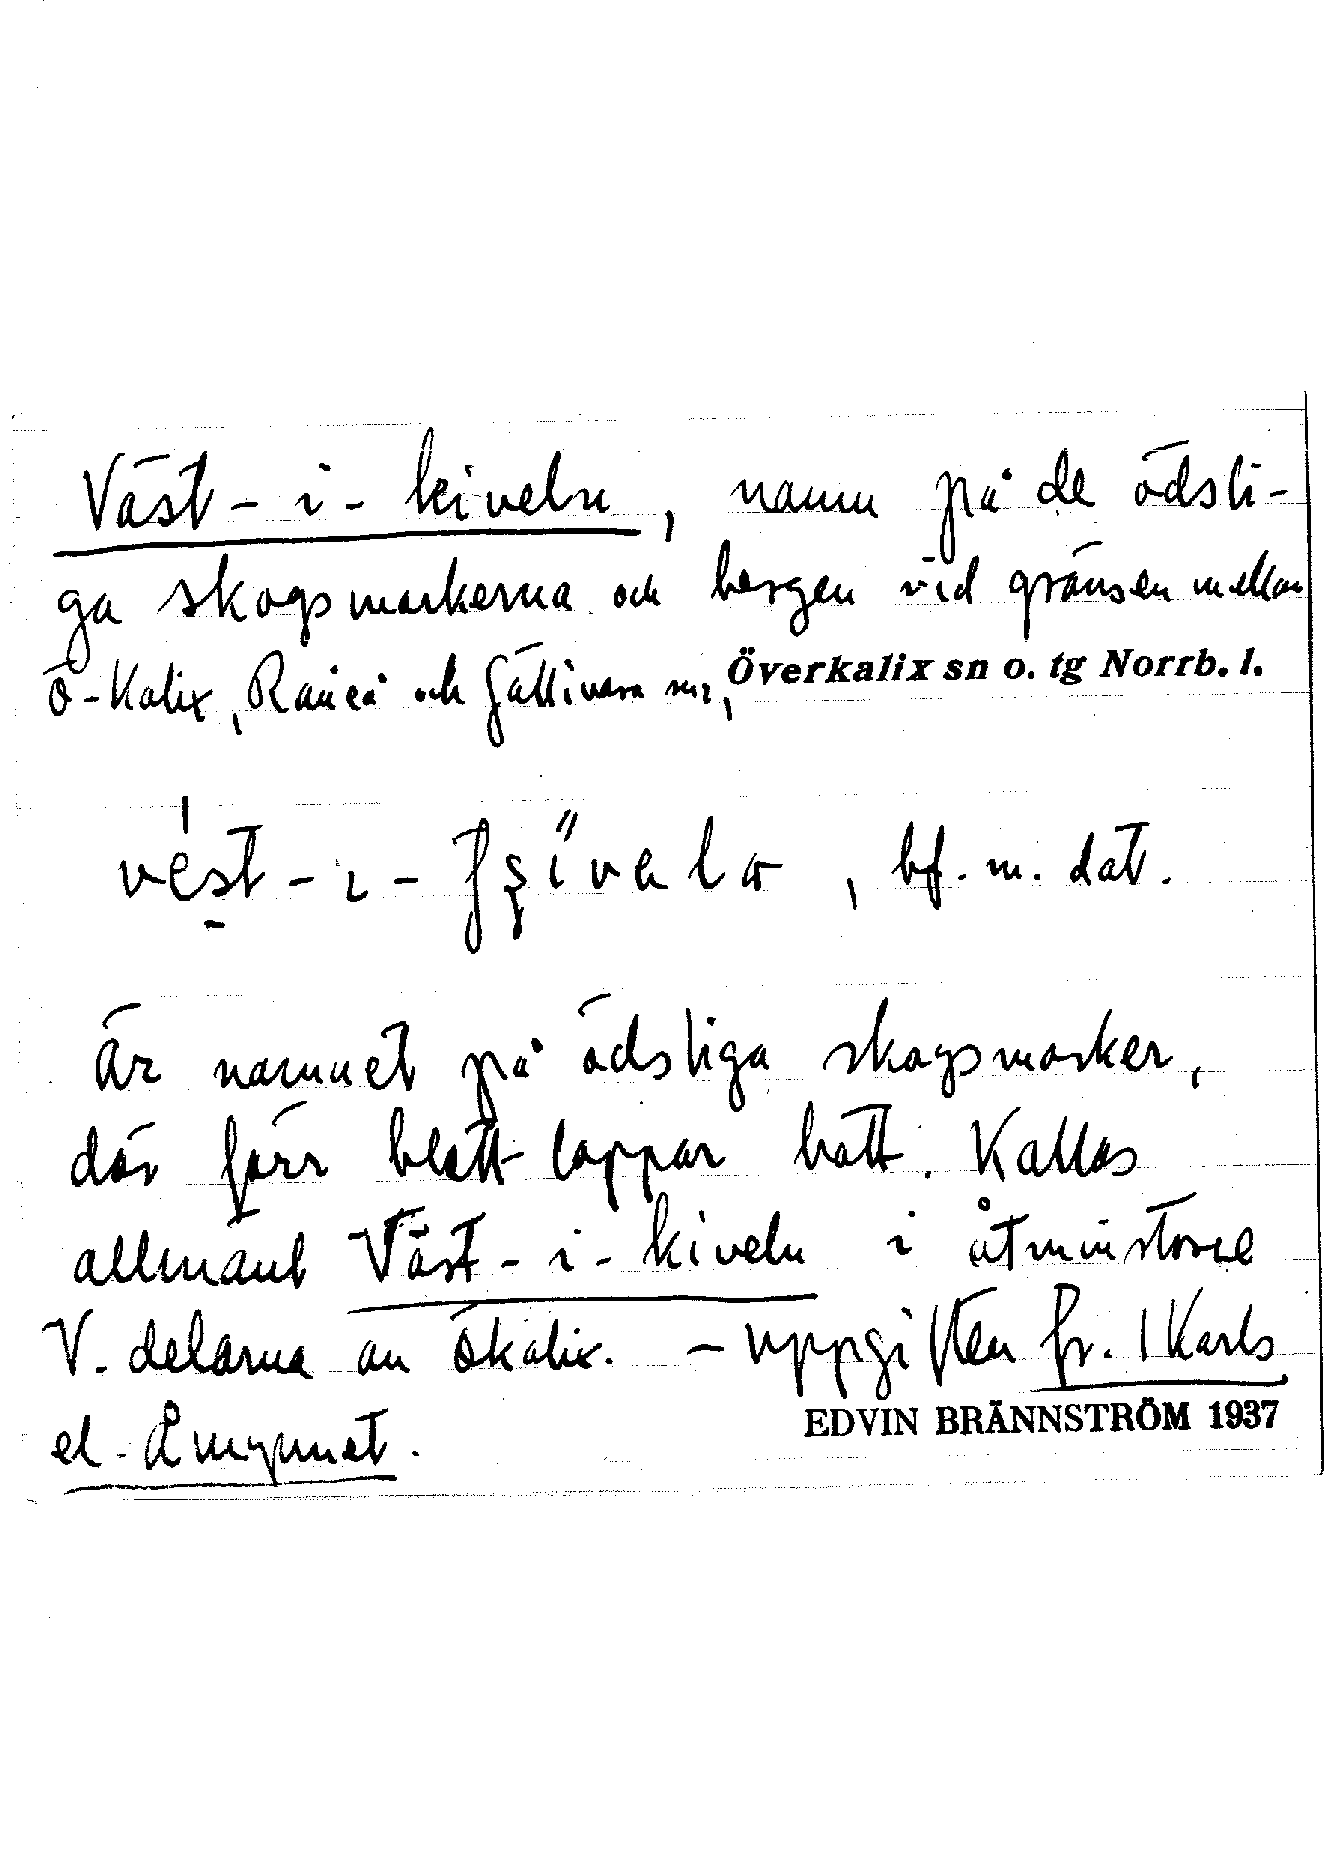 Väst-i-kiveln, namn på de ödsli-
ga skogsmarkerna och bergen vid gränsen mellan
Ö-Kalix, Råneå och Gällivara snr, Överkalix sn o. tg Norrb. l.
bf. m. dat.
Är namnet på ödsliga skogsmarker,
där förr blott lappar bott. Kallas
allmänt Väst-i-kiveln i åtminstone
V. delarna av Ökalix. – uppgiften fr. Karls
el. Åmynnet.
EDVIN BRÄNNSTRÖM 1937